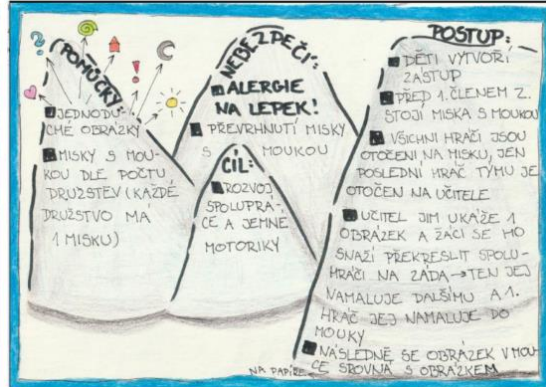 POMŮCKY
JEDNODU-
CHÉ OBRÁZKY
MISKY S MOU-
KOU DLE POČTU
DRUŽSTEV (KAŽDÉ
DRUŽSTVO MÁ
1 MISKU)
NEBEZPEČÍ:
ALERGIE
NA LEPEK!
PŘEVRHNUTÍ MISKY
S MOUKOU
CÍL:
ROZVOJ
SPOLUPRÁ-
CE A JEMNÉ
MOTORIKY
POSTUP:
DĚTI VYTVOŘÍ
ZÁSTUP
PŘED 1. ČLENEM Z.
STOJÍ MISKA S MOUKOU
VŠICHNI HRÁČI JSOU
OTOČENI NA MISKU, JEN
POSLEDNÍ HRÁČ TÝMU JE
OTOČEN NA UČITELE
UČITEL JIM UKÁŽE 1
OBRÁZEK A ŽÁCI SE HO
SNAŽÍ PŘEKRESLIT SPOLU-
HRÁČI NA ZÁDA → TEN JEJ
NAMALUJE DALŠÍMU A 1.
HRÁČ JEJ NAMALUJE DO
MOUKY
NÁSLEDNĚ SE OBRÁZEK V MOU-
CE SROVNÁ S OBRÁZKEM
NA PAPÍŘE